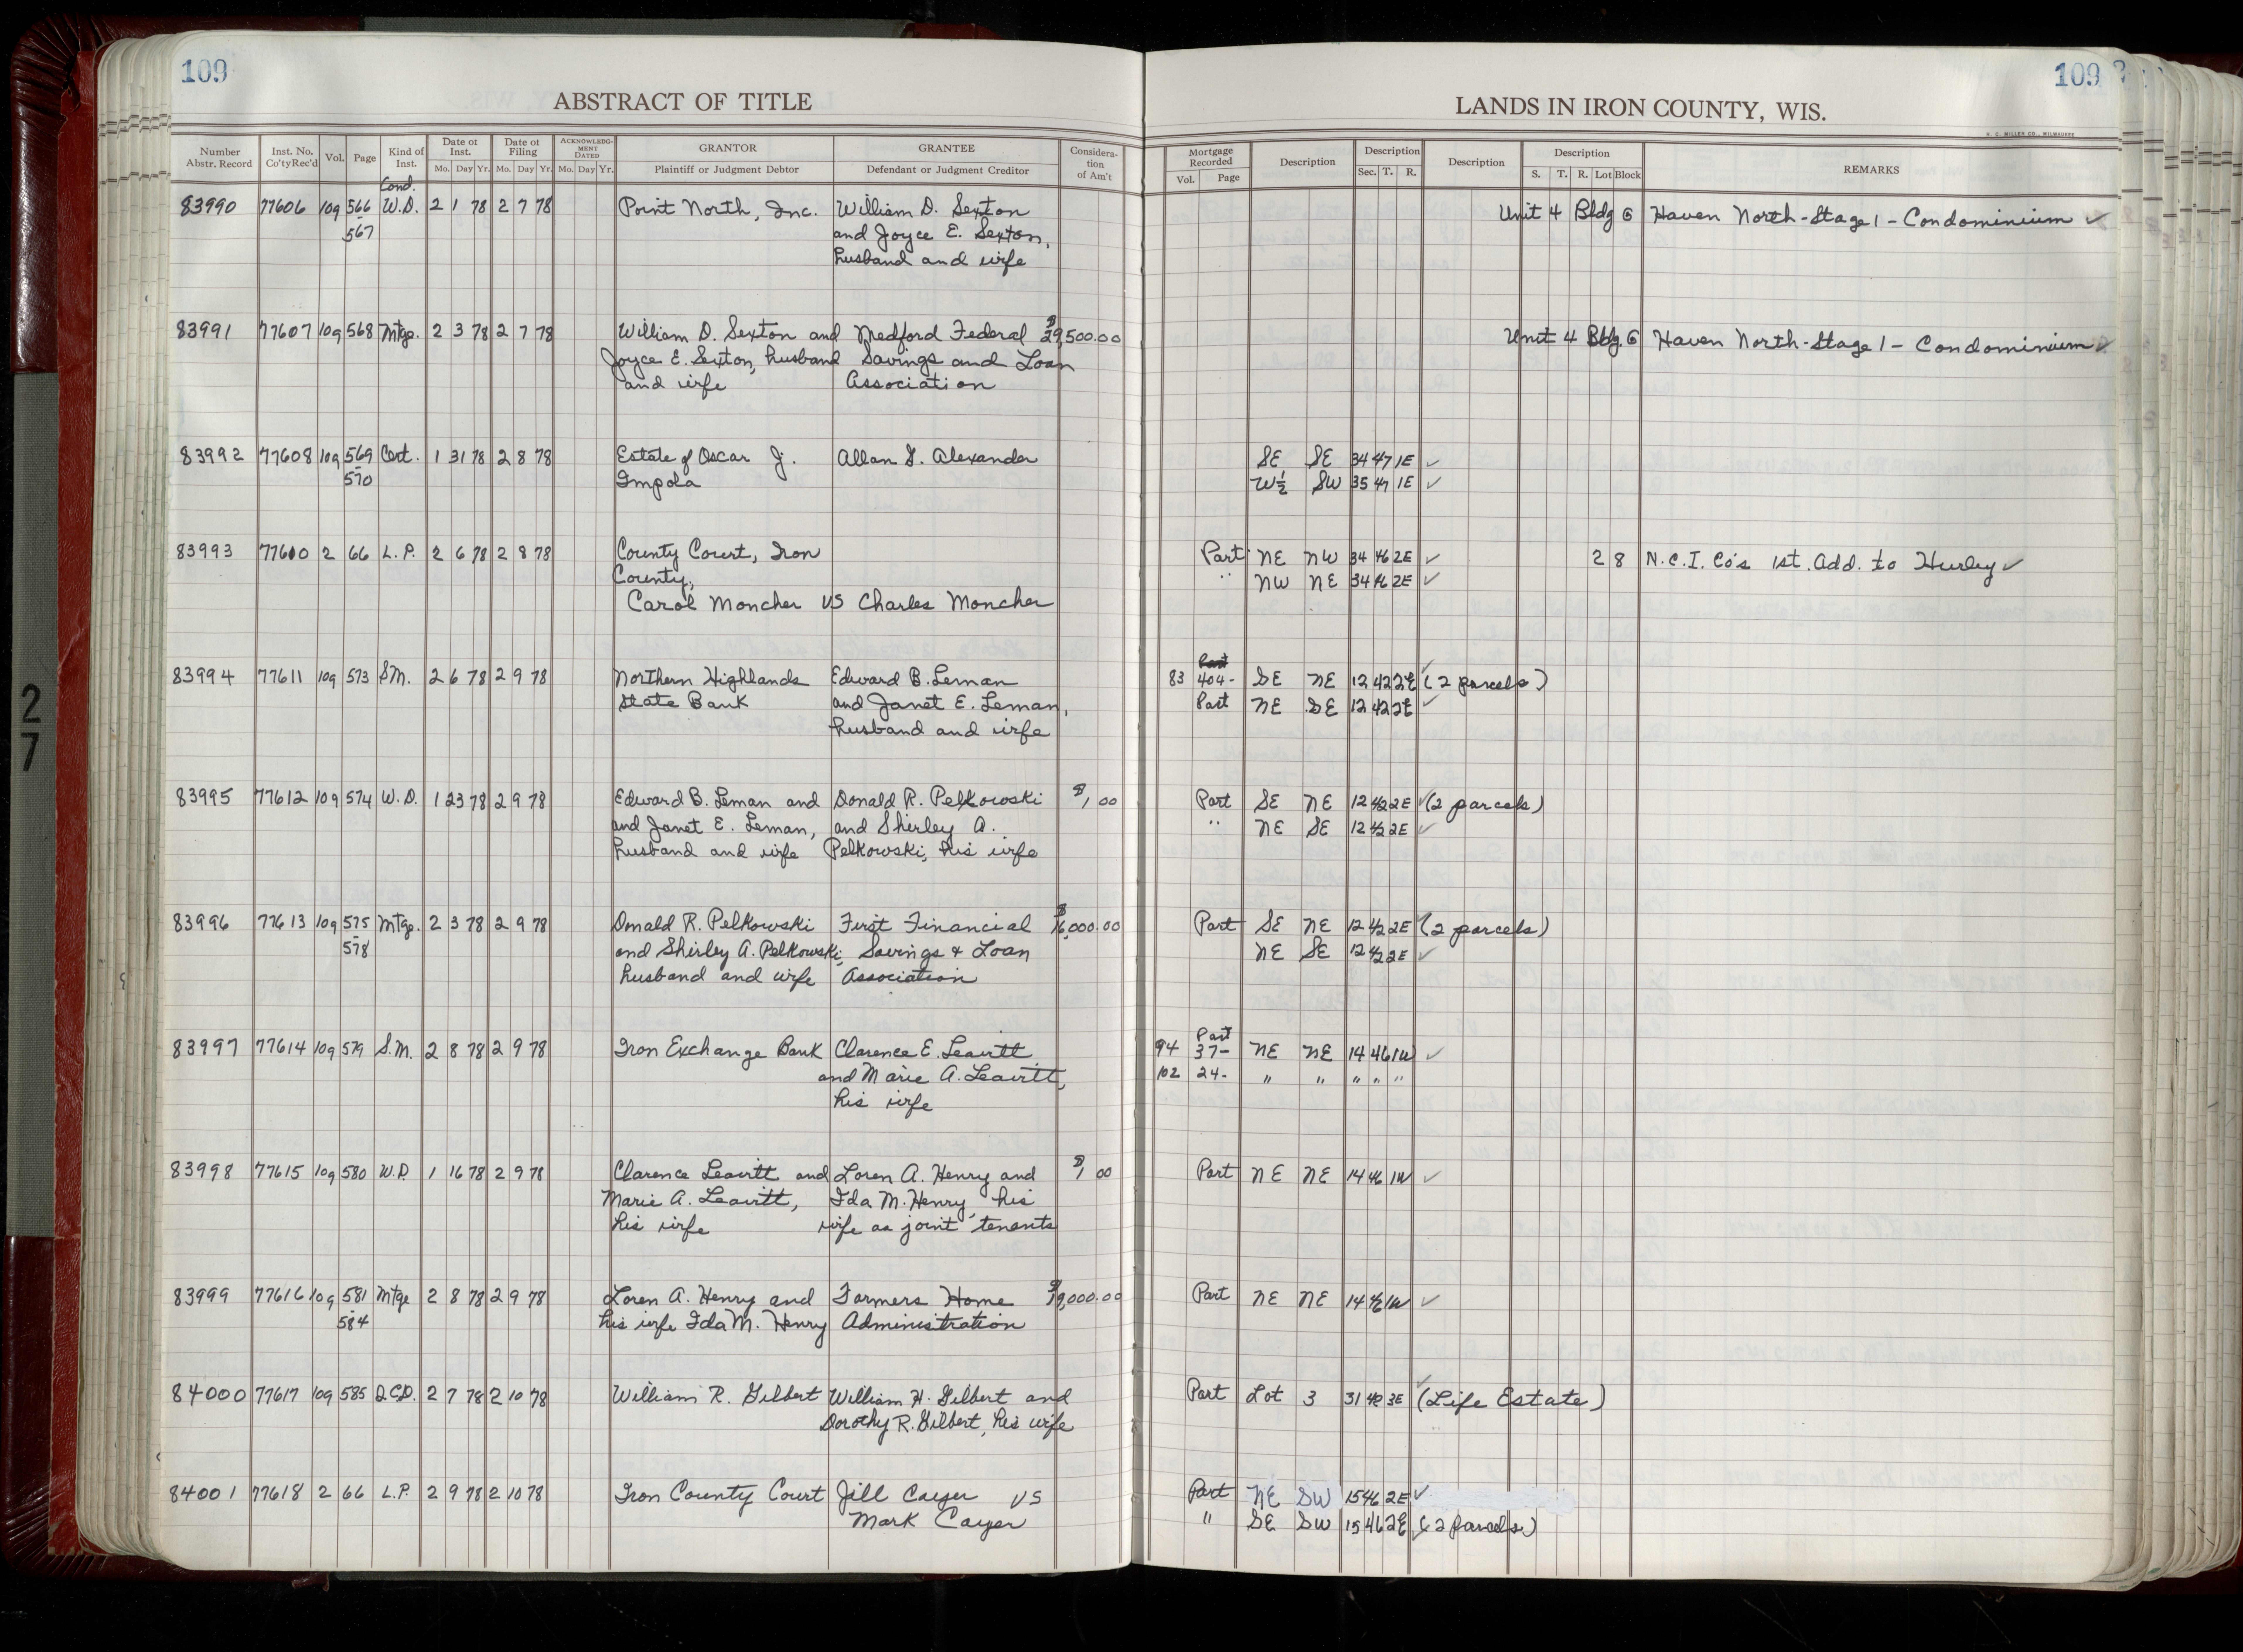 109
109
ABSTRACT OF TITLE
LANDS IN IRON COUNTY, WIS.
H. C. MILLER CO., MILWAUKEE
Number Abstr. Record Inst. No. Co'ty Rec'd Vol. Page Kind of Inst. Date of Inst. Mo. Day Yr. Date of Filing Mo. Day Yr. ACKNOWLEDGMENT DATED Mo. Day Yr. GRANTOR Plaintiff or Judgment Debtor GRANTEE Defendant or Judgment Creditor Consideration of Am't Mortgage Recorded Vol. Page Description Description Sec. T. R. Description Description S. T. R. Lot Block REMARKS
Cond.
83990 77606 109 566 W.D. 2 1 78 2 7 78 Point North, Inc. William D. Sexton Unit 4 Bldg G Haven North-Stage 1 - Condominium ✓
567 and Joyce E. Sexton,
husband and wife
83991 77607 109 568 Mtge. 2 3 78 2 7 78 William D. Sexton and Medford Federal $29,500.00 Unit 4 Bldg. G Haven North-Stage 1 - Condominium ✓
Joyce E. Sexton, husband Savings and Loan
and wife Association
83992 77608 109 569 Cert. 1 31 78 2 8 78 Estate of Oscar J. Allan G. Alexander SE SE 34 47 1E ✓
- 570 Impola W½ SW 35 47 1E ✓
83993 77610 2 66 L.P. 2 6 78 2 8 78 County Court, Iron Part NE NW 34 46 2E ✓ 2 8 N.C.I. Co's 1st. Add. to Hurley ✓
County, " NW NE 34 46 2E ✓
Carol Moncher VS Charles Moncher
Part
83994 77611 109 573 S.M. 2 6 78 2 9 78 Northern Highlands Edward B. Leman 83 404- SE NE 12 42 2E ✓ (2 parcels)
State Bank and Janet E. Leman, Part NE SE 12 42 2E ✓
husband and wife
83995 77612 109 574 W.D. 1 23 78 2 9 78 Edward B. Leman and Donald R. Pelkowski $1,00 Part SE NE 12 42 2E ✓ (2 parcels)
and Janet E. Leman, and Shirley A. " NE SE 12 42 2E ✓
husband and wife Pelkowski, his wife
83996 77613 109 575 Mtge. 2 3 78 2 9 78 Donald R. Pelkowski First Financial $16,000.00 Part SE NE 12 42 2E ✓ (2 parcels)
- 578 and Shirley A. Pelkowski, Savings & Loan NE SE 12 42 2E ✓
husband and wife Association
Part
83997 77614 109 579 S.M. 2 8 78 2 9 78 Iron Exchange Bank Clarence E. Leavitt 94 37- NE NE 14 46 1W ✓
and Marie A. Leavitt, 102 24- " " " " "
his wife
83998 77615 109 580 W.D. 1 16 78 2 9 78 Clarence Leavitt and Loren A. Henry and $1,00 Part NE NE 14 46 1W ✓
Marie A. Leavitt, Ida M. Henry, his
his wife wife as joint tenants
83999 77616 109 581 Mtge 2 8 78 2 9 78 Loren A. Henry and Farmers Home $19,000.00 Part NE NE 14 46 1W ✓
- 584 his wife Ida M. Henry Administration
84000 77617 109 585 Q.C.D. 2 7 78 2 10 78 William R. Gilbert William H. Gilbert and Part Lot 3 31 42 3E ✓ (Life Estate)
Dorothy R. Gilbert, his wife
84001 77618 2 66 L.P. 2 9 78 2 10 78 Iron County Court Jill Cayer VS Part NE SW 15 46 2E ✓
Mark Cayer " SE SW 15 46 2E ✓ (2 parcels)
27